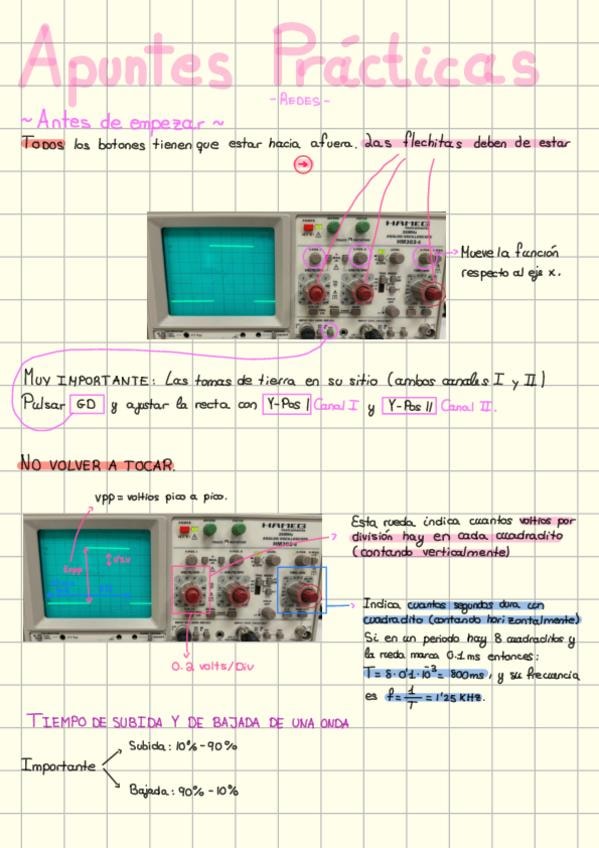 Apuntes Prácticas
- REDES -
~ Antes de empezar ~
TODOS los botones tienen que estar hacia afuera. Las flechitas deben de estar
→
HAMEG
HM303-6
Mueve la función
respecto al eje x.
MUY IMPORTANTE: Las tomas de tierra en su sitio (ambos canales I y II)
Pulsar GD y ajustar la recta con Y-Pos I Canal I y Y-Pos II Canal II.
NO VOLVER A TOCAR.
vpp = voltios pico a pico.
HAMEG
HM303-6
Esta rueda indica cuantos voltios por
división hay en cada cuadradito
(contando verticalmente)
0.2 volts/Div
Indica cuantos segundos dura un
cuadradito (contando horizontalmente)
Si en un periodo hay 8 cuadraditos y
la rueda marca 0.1 ms entonces:
T = 8·0'1·10⁻³ = 800ms, y su frecuencia
es f = 1/T = 1'25 KHz.
TIEMPO DE SUBIDA Y DE BAJADA DE UNA ONDA
Importante
Subida: 10% - 90%
Bajada: 90% - 10%